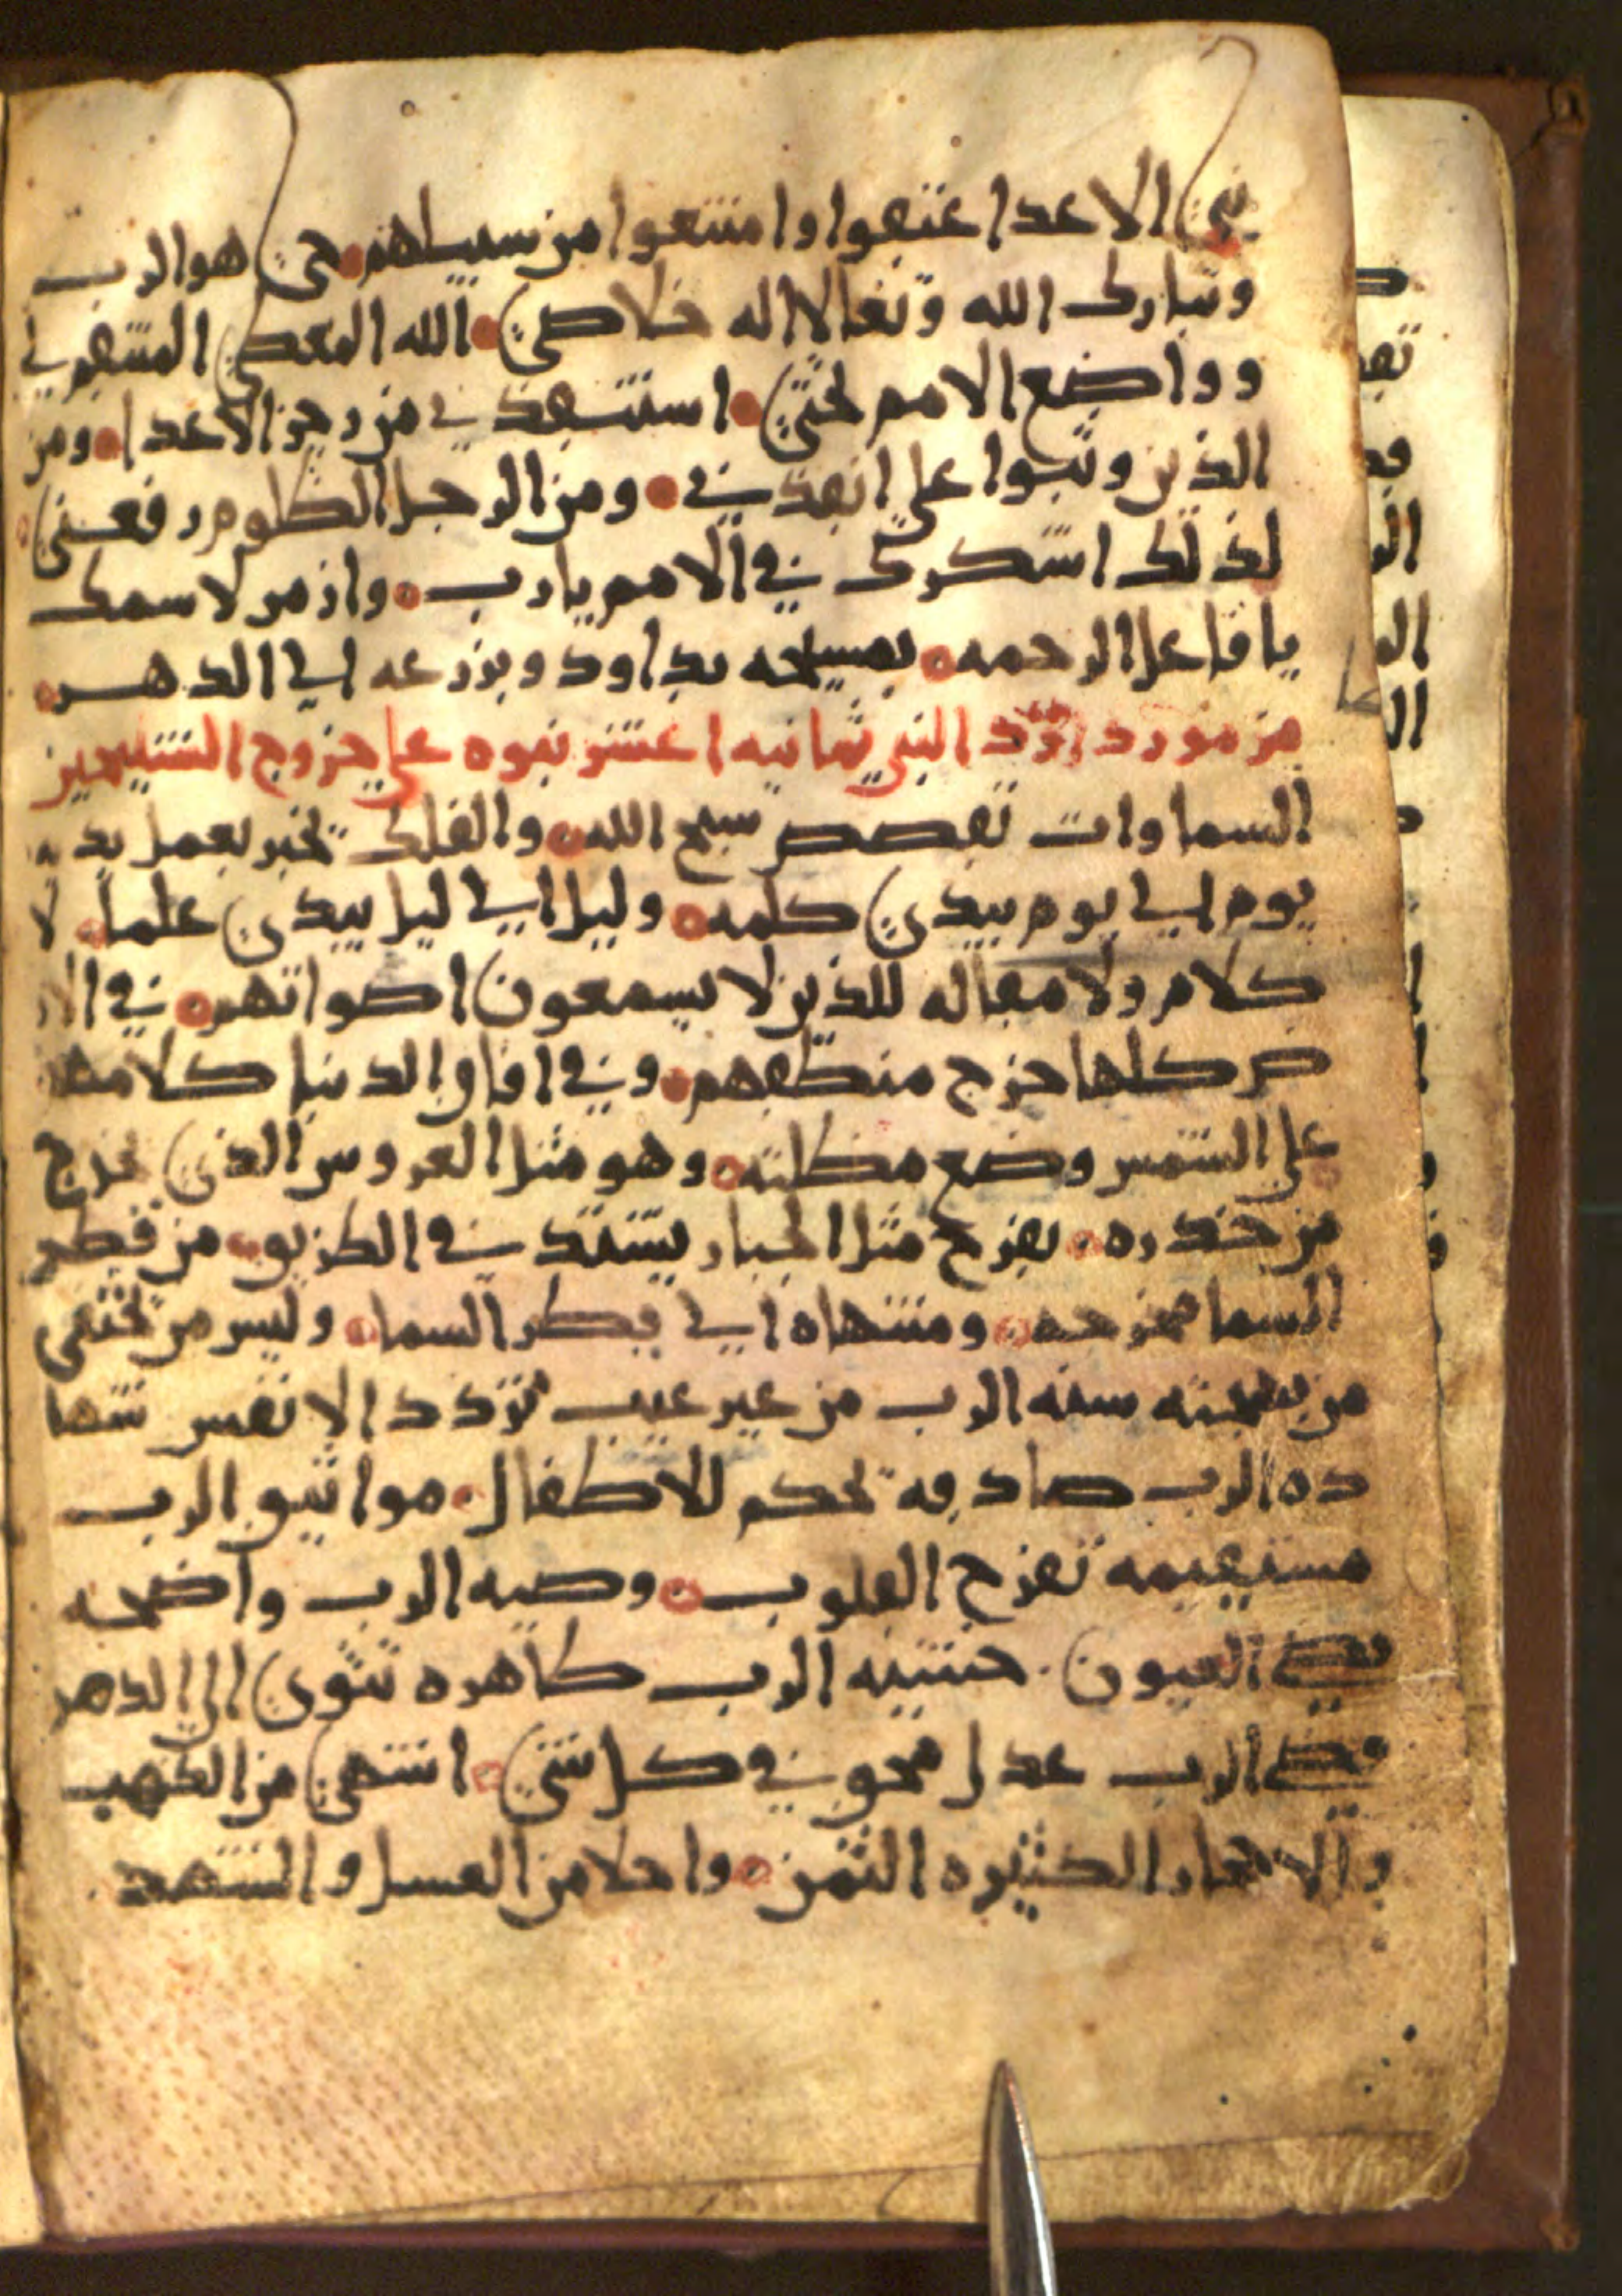 بني الاعدا عتقوا وامتنعوا من سبيلهم حي هو الرب
وتبارك الله وتعالا اله خلاصي الله المعطي المنتقم لي
وواضع الامم تحتي استنقذني من رجز الاعدا ومن
الذين وثبوا علي انقذني ومن الرجل الظلوم رفعني
لذلك اشكرك في الامم يا رب وازمر لاسمك
يا فاعل الرحمه بمسيحه بداود وبزرعه الي الدهر
مزمور داود النبي ثمانيه اعشر نبوه علي خروج السليحين
السماوات تقصص سبح الله والفلك تخبر بعمل يديه
يوم الي يوم يبدي كلمه وليل الي ليل يبدي علما لا
كلام ولا مقاله للذين لا يسمعون اصواتهم في الار
ض كلها خرج منطقهم وفي افاق الدنيا كلامها
علي الشمس وضع مظلته وهو مثل العروس الذي يخرج
من خدره يفرح مثل الجبار يشتد في الطريق من قطر
السما مخرجه ومنتهاه الي قطر السما وليس من يختفي
من سخنته سنه الرب من غير عيب تردد الانفس شها
ده الرب صادقه تحكم للاطفال مواثيق الرب
مستقيمه تفرح القلوب وصيه الرب واضحه
تضي العيون خشيه الرب طاهره تثوي الي الدهر
قضي الرب عدل محق في كل شي اشتهي من الذهب
والاحجار الكثيره الثمن واحلا من العسل والشهد